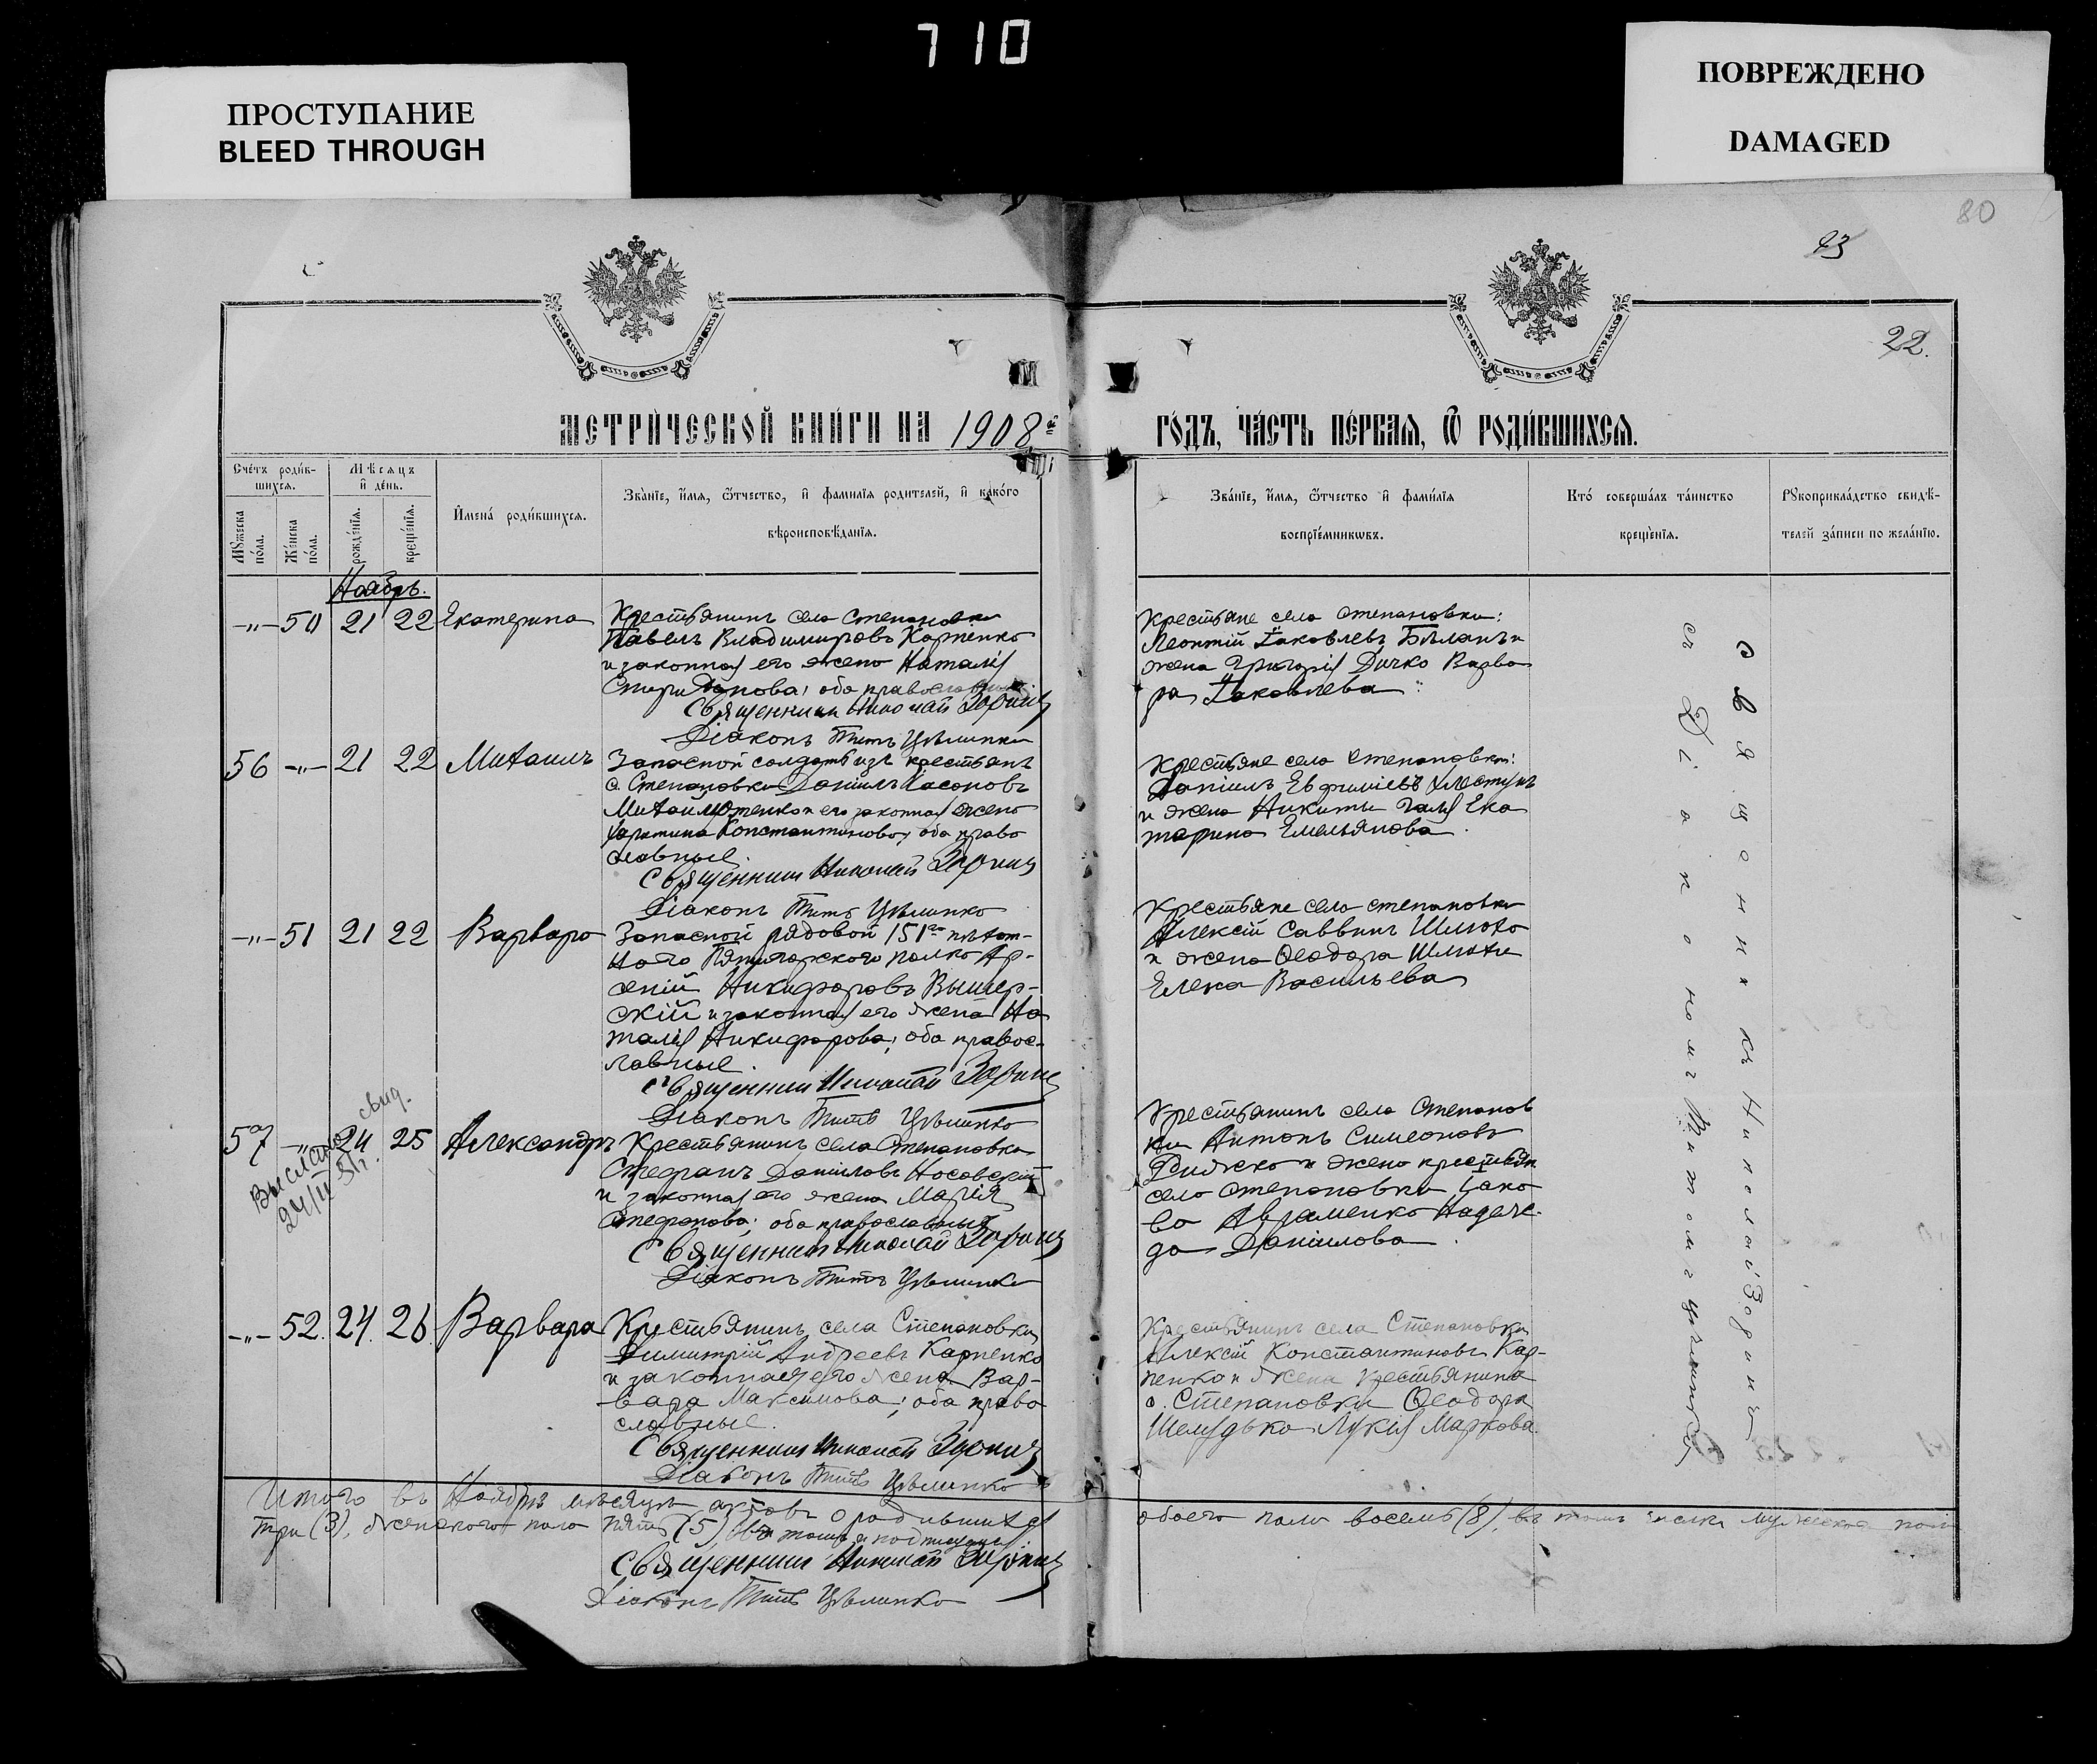 710
ПРОСТУПАНИЕ
BLEED THROUGH
ПОВРЕЖДЕНО
DAMAGED
80
23
22.
МЕТРИЧЕСКОЙ КНИГИ НА 1908й
ГОДЪ, ЧАСТЬ ПЕРВАЯ, Ѿ РОДИВШИХСЯ.
Счетъ родив-
шихся.
Мужеска
пола.
Женска
пола.
Мѣсяцъ
и день.
рожденія.
крещенія.
Имена родившихся.
Званіе, имя, ѿтчество, и фамилія родителей, и какого
вѣроисповѣданія.
Званіе, имя, ѿтчество и фамилія
воспріемниковъ.
Кто совершалъ таинство
крещенія.
Рукоприкладство свидѣ-
телей записи по желанію.
Ноябрь.
-"- 50 21 22 Екатерина
Крестьянинъ села Степановки
Павелъ Владимировъ Карпенко
и законная его жена Наталія
Спиридонова; оба православные
Священникъ Николай Зоринъ
Діаконъ Титъ Цѣлинко
Крестьяне села Степановки:
Леонтій Іаковлевъ Бѣланъ и
жена Григорія Дичко Варва
ра Іаковлева
56 -"- 21 22 Михаилъ
Запасной солдатъ изъ крестьянъ
с. Степановки Даніилъ Касоновъ
Михайлютенко и его законная жена
Харитина Константинова, оба право
славные.
Священникъ Николай Зоринъ
Діаконъ Титъ Цѣлинко
Крестьяне села Степановки:
Даніилъ Евфиміевъ Хлестунъ
и жена Никиты Гала Ека
терина Емельянова.
-"- 51 21 22 Варвара
Запасной рядовой 151го пѣхот-
наго Пятигорскаго полка Ар-
сеній Никифоровъ Вышер-
скій и законная его жена На
талія Никифорова; оба правос-
лавные.
Священникъ Николай Зоринъ
Діаконъ Титъ Цѣлинко
Крестьяне села Степановки
Алексій Саввинъ Шлюха
и жена Ѳеодора Шлюхи
Елена Васильева
57 -"- 24 25 Александръ
Выслано свид.
Крестьянинъ села Степановки
Стефанъ Даніиловъ Носовскій
и законная его жена Марія
Стефанова; оба православные
Священникъ Николай Зоринъ
Діаконъ Титъ Цѣлинко
Крестьянинъ села Степанов
ки Антонъ Симеоновъ
и жена крестьян
села Степановки Іако
ва Авраменко Надеж-
да Даніилова.
-"- 52. 24. 26 Варвара
Крестьянинъ села Степановки
Димитрій Андреевъ Карпенко
и законная его жена Вар-
вара Максимова; оба право
славные.
Священникъ Николай Зоринъ
Діаконъ Титъ Цѣлинко
Крестьянинъ села Степановки
Алексій Константиновъ Кар-
пенко и жена крестьянина
с. Степановки Ѳеодора
Шелудько Лукія Маркова.
Священникъ Николай Зоринъ
съ Діакономъ Титомъ Цѣлинко
Итого въ Ноябрѣ мѣсяцѣ актовъ о родившихся обоего пола восемь (8), въ томъ числѣ мужеска пола
три (3), женскаго пола пять (5), въ томъ и подписуемся
Священникъ Николай Зоринъ
Діаконъ Титъ Цѣлинко